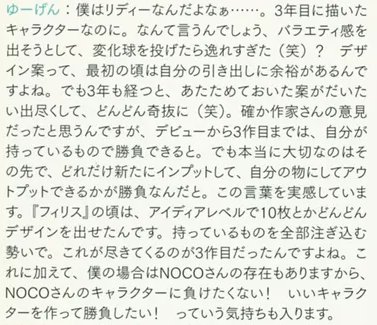 ゆーげん：僕はリディーなんだよなぁ……。3年目に描いた
キャラクターなのに。なんて言うんでしょう、バラエティ感を
出そうとして、変化球を投げたら逸れすぎた（笑）？　デザ
イン案って、最初の頃は自分の引き出しに余裕があるんで
すよね。でも3年も経つと、あたためておいた案がだいた
い出尽くして、どんどん奇抜に（笑）。確か作家さんの意見
だったと思うんですが、デビューから3作目までは、自分が
持っているもので勝負できると。でも本当に大切なのはそ
の先で、どれだけ新たにインプットして、自分の物にしてアウ
トプットできるかが勝負なんだと。この言葉を実感していま
す。『フィリス』の頃は、アイディアレベルで10枚とかどんどん
デザインを出せたんです。持っているものを全部注ぎ込む
勢いで。これが尽きてくるのが3作目だったんですよね。こ
れに加えて、僕の場合はNOCOさんの存在もありますから、
NOCOさんのキャラクターに負けたくない！　いいキャラク
ターを作って勝負したい！　っていう気持ちも入ります。